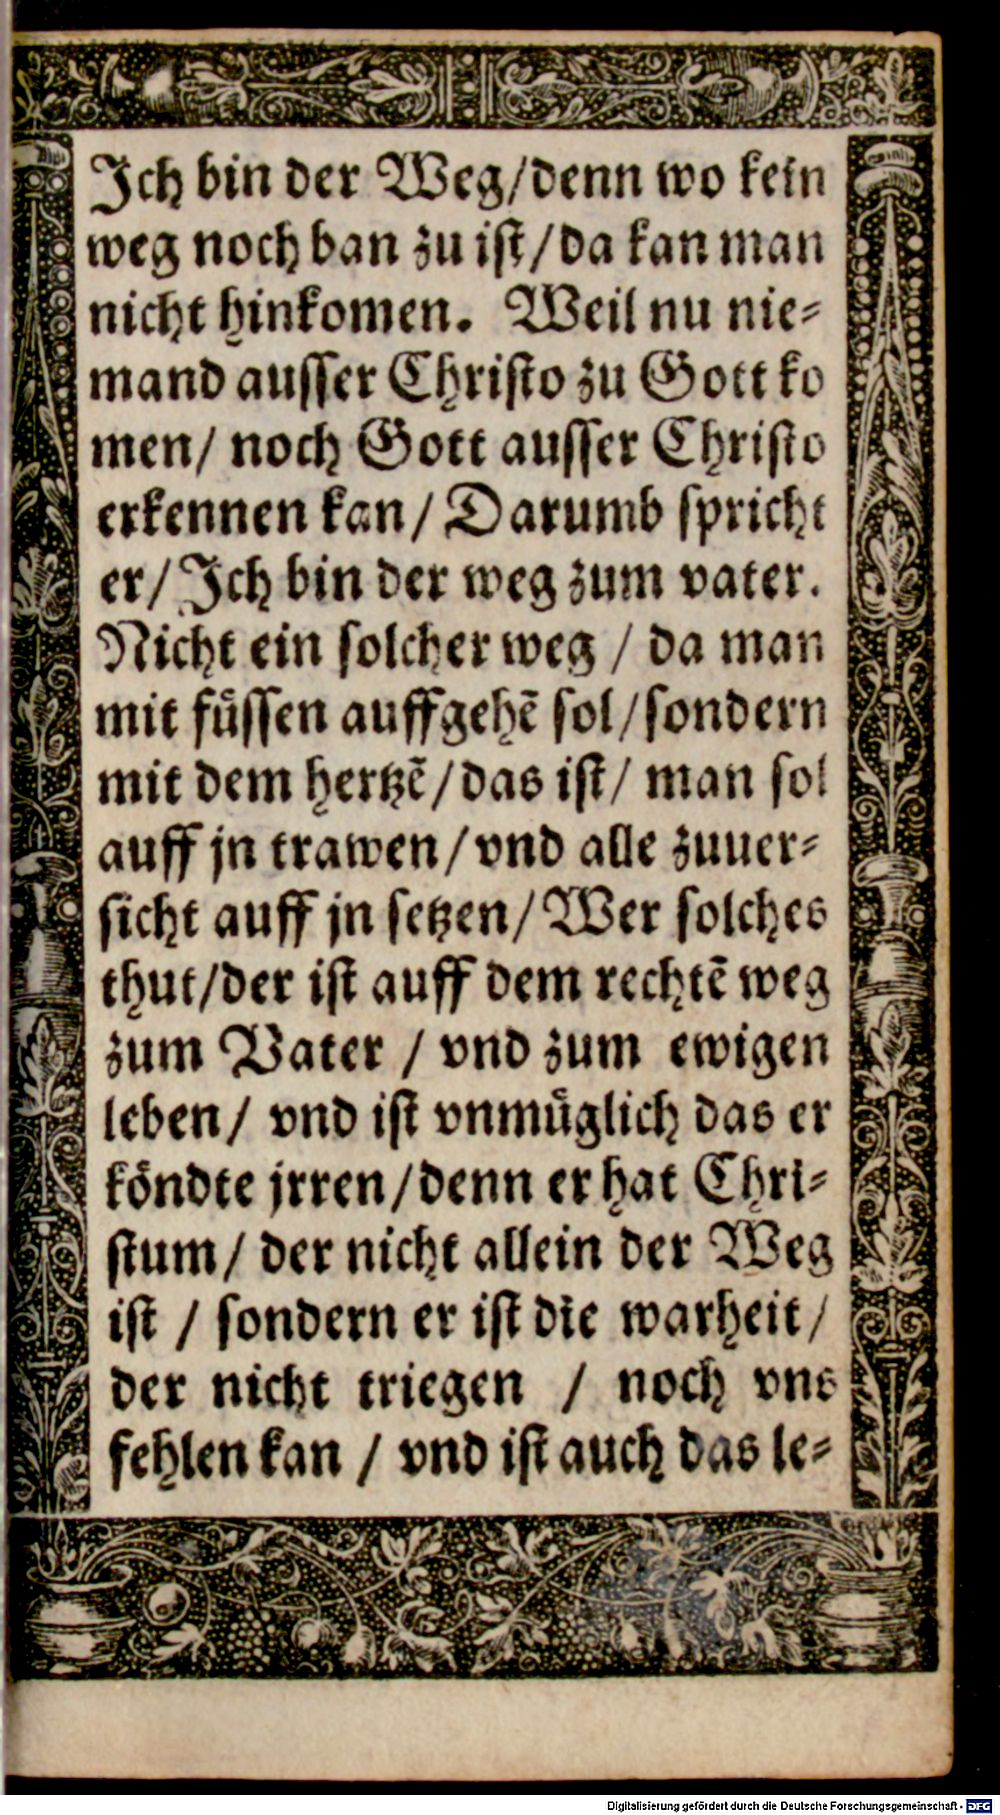 Ich bin der Weg/denn wo kein
weg noch ban zu iſt/da kan man
nicht hinkomen. Weil nu nie⸗
mand auſſer Chriſto zu Gott ko
men/ noch Gott auſſer Chriſto
erkennen kan/ Darumb ſpricht
er/ Ich bin der weg zum vater.
Nicht ein ſolcher weg / da man
mit fuͤſſen auffgehẽ ſol/ſondern
mit dem hertzẽ/das iſt/ man ſol
auff jn trawen/vnd alle zuuer⸗
ſicht auff jn ſetzen/ Wer ſolches
thut/der iſt auff dem rechtẽ weg
zum Vater / vnd zum ewigen
leben/ vnd iſt vnmuͤglich das er
koͤndte jrren/denn er hat Chri⸗
ſtum/ der nicht allein der Weg
iſt / ſondern er iſt die warheit/
der nicht triegen / noch vns
fehlen kan / vnd iſt auch das le⸗
Digitalisierung gefördert durch die Deutsche Forschungsgemeinschaft - DFG